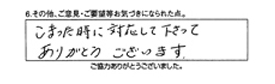 6.その他、ご意見・ご要望等お気づきになられた点。
こまった時に対応して下さって
ありがとう ございます
ご協力ありがとうございました。